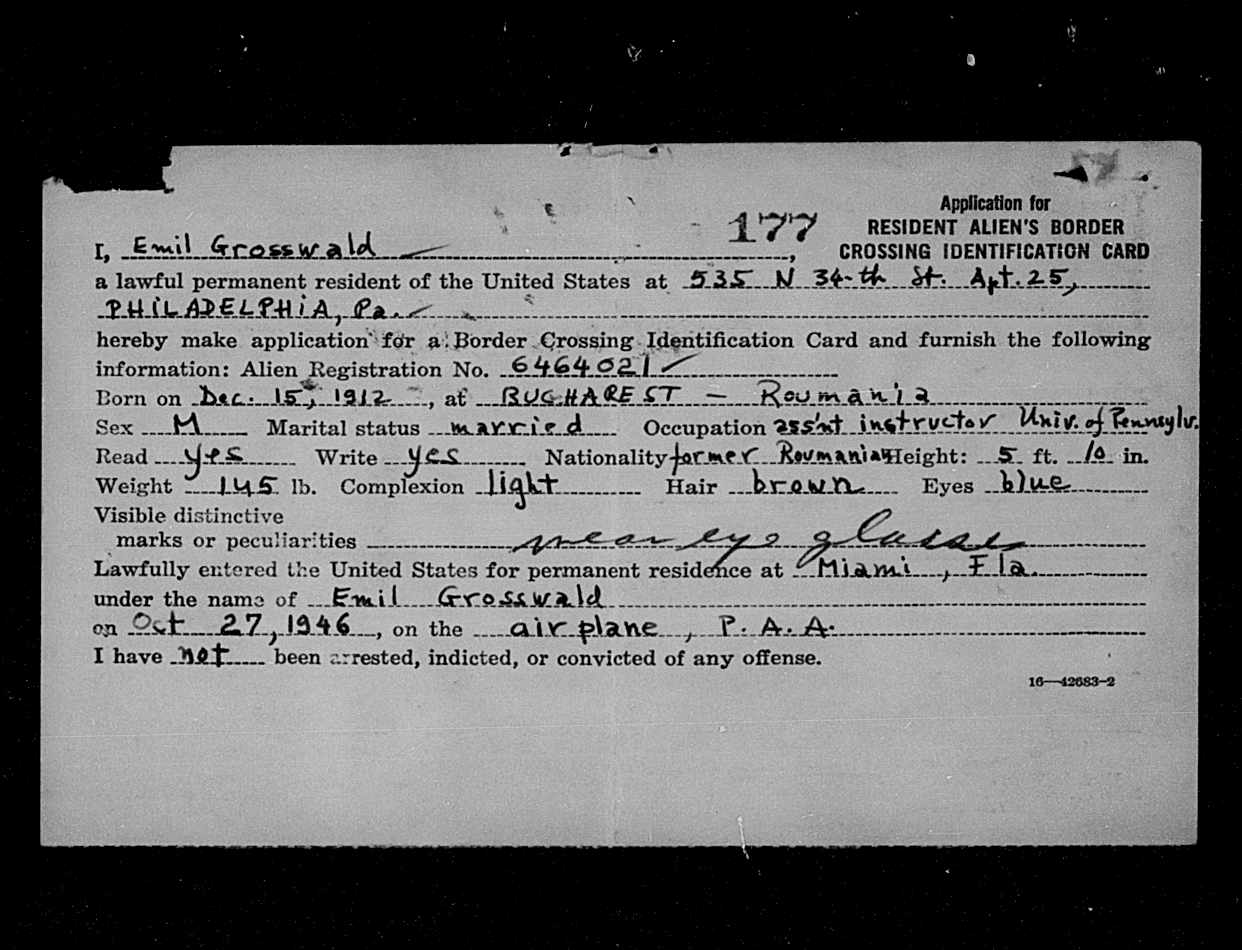 Application for
177 RESIDENT ALIEN'S BORDER
I, Emil Grosswald, CROSSING IDENTIFICATION CARD
a lawful permanent resident of the United States at 535 N 34-th St. Apt. 25,
PHILADELPHIA, Pa.
hereby make application for a Border Crossing Identification Card and furnish the following
information: Alien Registration No. 6464021
Born on Dec. 15, 1912, at BUCHAREST - Roumania
Sex M Marital status married Occupation ass'nt instructor Univ. of Pennsylv.
Read yes Write yes Nationality former Roumanian Height: 5 ft. 10 in.
Weight 145 lb. Complexion light Hair brown Eyes blue
Visible distinctive
marks or peculiarities wear eye glasses
Lawfully entered the United States for permanent residence at Miami, Fla.
under the name of Emil Grosswald
on Oct 27, 1946, on the airplane, P.A.A.
I have not been arrested, indicted, or convicted of any offense.
16—42683-2